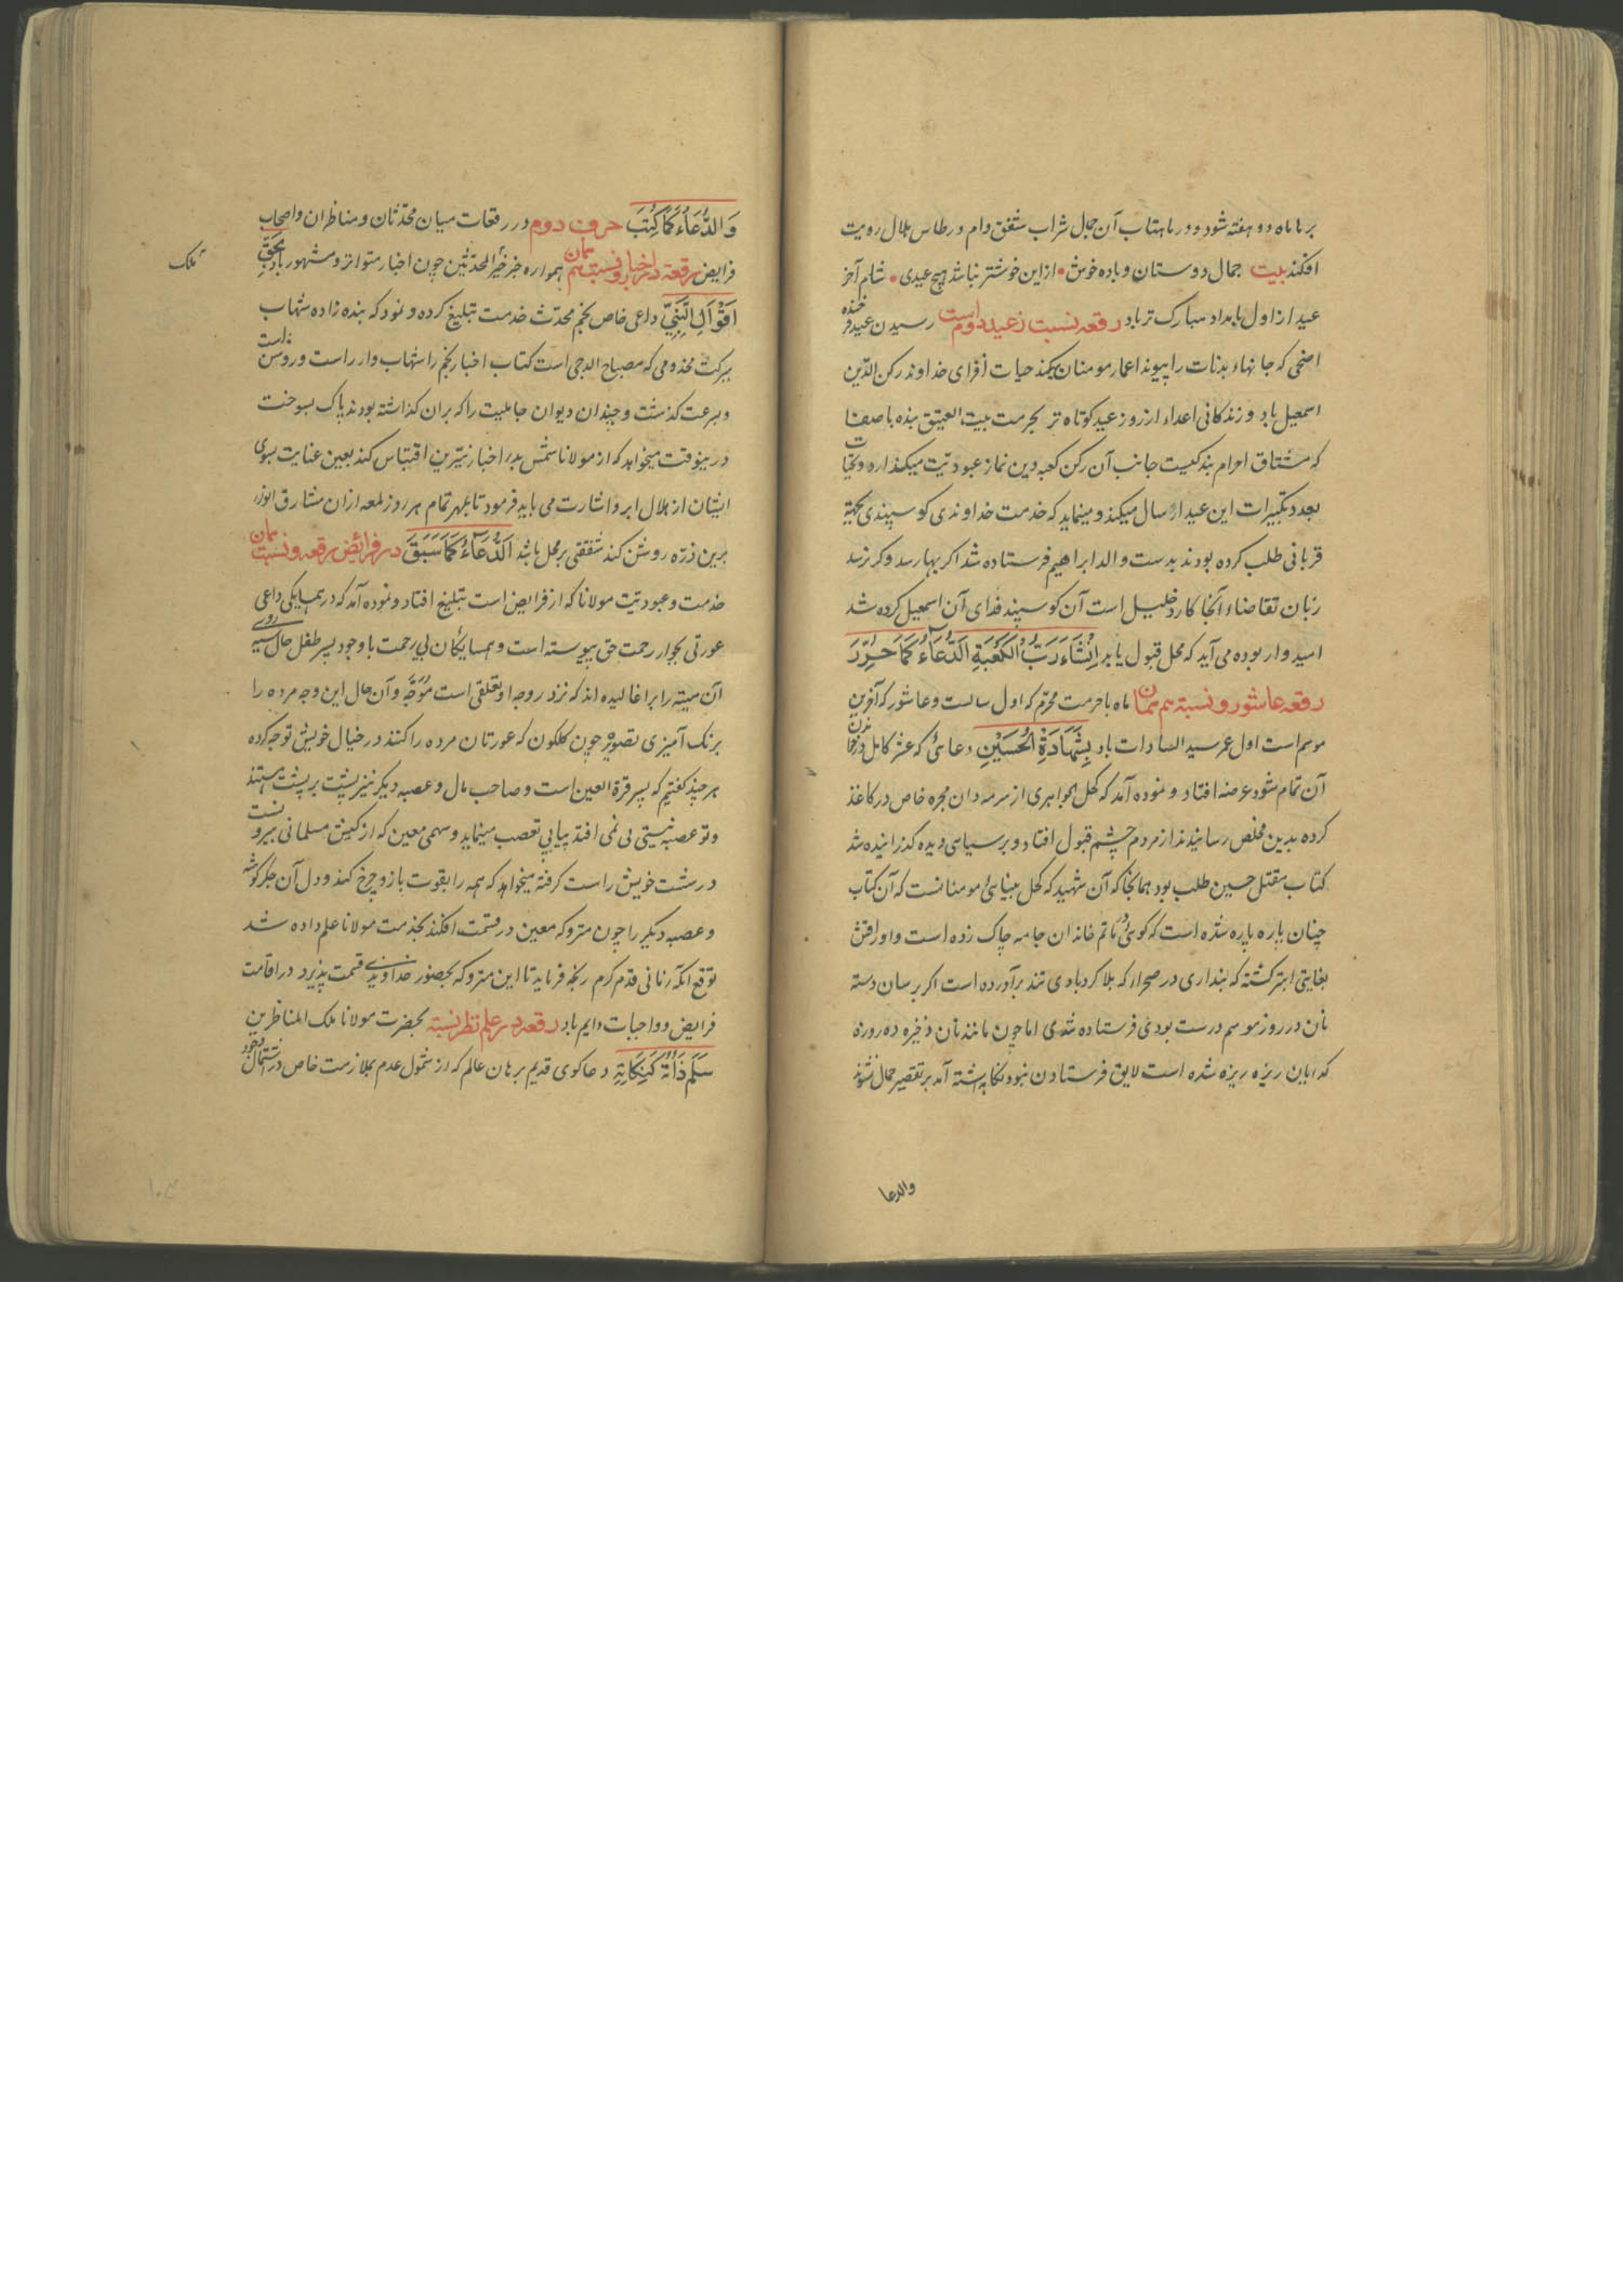 بر ماماه دو هفته شود و در ماهتاب آن جمال شراب شفق دام در طاس هلال رویت
افکند بیت جمال دوستان و باده خوش • ازین خوشتر نباشد هیچ عیدی • شام آخر
عید از اول بامداد مبارک تر باد رقعه نسبت ز عید دوم است رسیدن عید فرخنده
اضحی که جانهاء بدنات را پیوند اعمار مومنان میکند حیات افزای خداوند رکن الدین
اسمعیل باد و زندکانی اعداء از روز عید کوتاه تر بحرمت بیت العتیق بنده با صفا
که مشتاق احرام بندکیست جانب آن رکن کعبه دین نماز عبودیت میکذارد و تحیات
بعدد تکبیرات این عید ارسال میکند و مینماید که خدمت خداوندی کوسپندی بجهة
قربانی طلب کرده بودند بدست والد ابراهیم فرستاده شد اکر بها رسد و کر نرسد
زبان تقاضاء آنجا کارد خلیل است آن کوسپند فدای آن اسمعیل کرده شد
امیدوار بوده می آید که محل قبول یابد انشاء رب الکعبة الدعاء کما حرّر
رقعه عاشور و نسبة هم همان ماه باحرمت محرم که اول سالست و عاشور که آخرین
موسم است اول عمر سید السادات باد بشهادة الحسین دعائی که عشر کامل در
آن تمام شود عرضه افتاد و نموده آمد که کحل الجواهری از سرمه دان محبره خاص در کاغذ
کرده بدین مخلص رسانیدند از مردم چشم قبول افتاد و بر سیاسی دیده کذرانیده شد
کتاب مقتل حسین طلب بود همانجا که آن شهید که کحل بینائی مومنانست که آن کتاب
چنان پاره پاره شده است که کوئی در ماتم خاندان جامه چاک زده است و اوراقش
بغایتی ابتر کشته که پنداری در صحرا که بلا کردبادی تند برآورده است اکر بر سان دسته
نان در روز موسم درست بودی فرستاده شدی اما چون مانند نان ذخیره ده روزه
کدایان ریزه ریزه شده است لایق فرستادن نبود نکاهداشته آمد بر تقصیر حمال نشوند
والدعا
والدعاء کما کتب حرف دوم در رقعات میان محدثان و مناظران و اصحاب
فرایض رقعة در اخبار و نسبت هم همان همواره خبر خیر المحدثین چون اخبار متواتر و مشهور باد بحق
ملک
اقوال النبی داعی خاص نجم محدث خدمت تبلیغ کرده و نمود که بنده زاده شهاب
ببرکت مخدومی که مصباح الدجی است کتاب اخبار نجم را شهاب وار راست و روشن
و بسرعت کذشت و چندان دیوان جاهلیت را که بران کذاشته بودند پاک بسوخت
درینوقت میخواهد که از مولانا شمس بدر اخبار نیرین اقتباس کند بعین عنایت بسوی
ایشان از هلال ابرو اشارت می باید فرمود تا بمهر تمام هر روز لمعه از ان مشارق انوار
برین ذره روشن کند شفقتی بر محل باشد الدعاء کما سبق در فرائض رقعه و نسبت همان
خدمت و عبودیت مولانا که از فرایض است تبلیغ افتاد و نموده آمد که در همسایکی داعی
عورتی بجوار رحمت حق پیوسته است و همسایکان بی رحمت با وجود پسر طفل خال سیه روی
آن میته را براغالیده اند که نزد روجه او تعلقی است موجّه و آن خال این وجه مرده را
برنک آمیزی تصویر چون کلکون که عورتان مرده را کنند در خیال خویش توجه کرده
هر چند کفتیم که پسر قرة العین است و صاحب مال و عصبه دیکر نیز پشت بر پشت هستند
و تو عصبه نیستی بی نمی افتد پیاپی تعصب مینماید و سهمی معین که از کیش مسلمانی بیرونست
در شست خویش راست کرفته میخواهد که همه را بقوت بازو چرخ کند و دل آن جکرکوشه
و عصبه دیکر را چون متروکه معین در قسمت افکند بخدمت مولانا علم داده شد
توقع انکه زمانی قدم کرم رنجه فرماید تا این متروکه بحضور خداوندی قسمت پذیرد در اقامت
فرایض و واجبات دایم باد رقعه در علم نظر نسبة بحضرت مولانا ملک المناظرین
سلم ذاته دعاکوی قدیم برهان عالم که از شمول عدم ملازمت خاص در